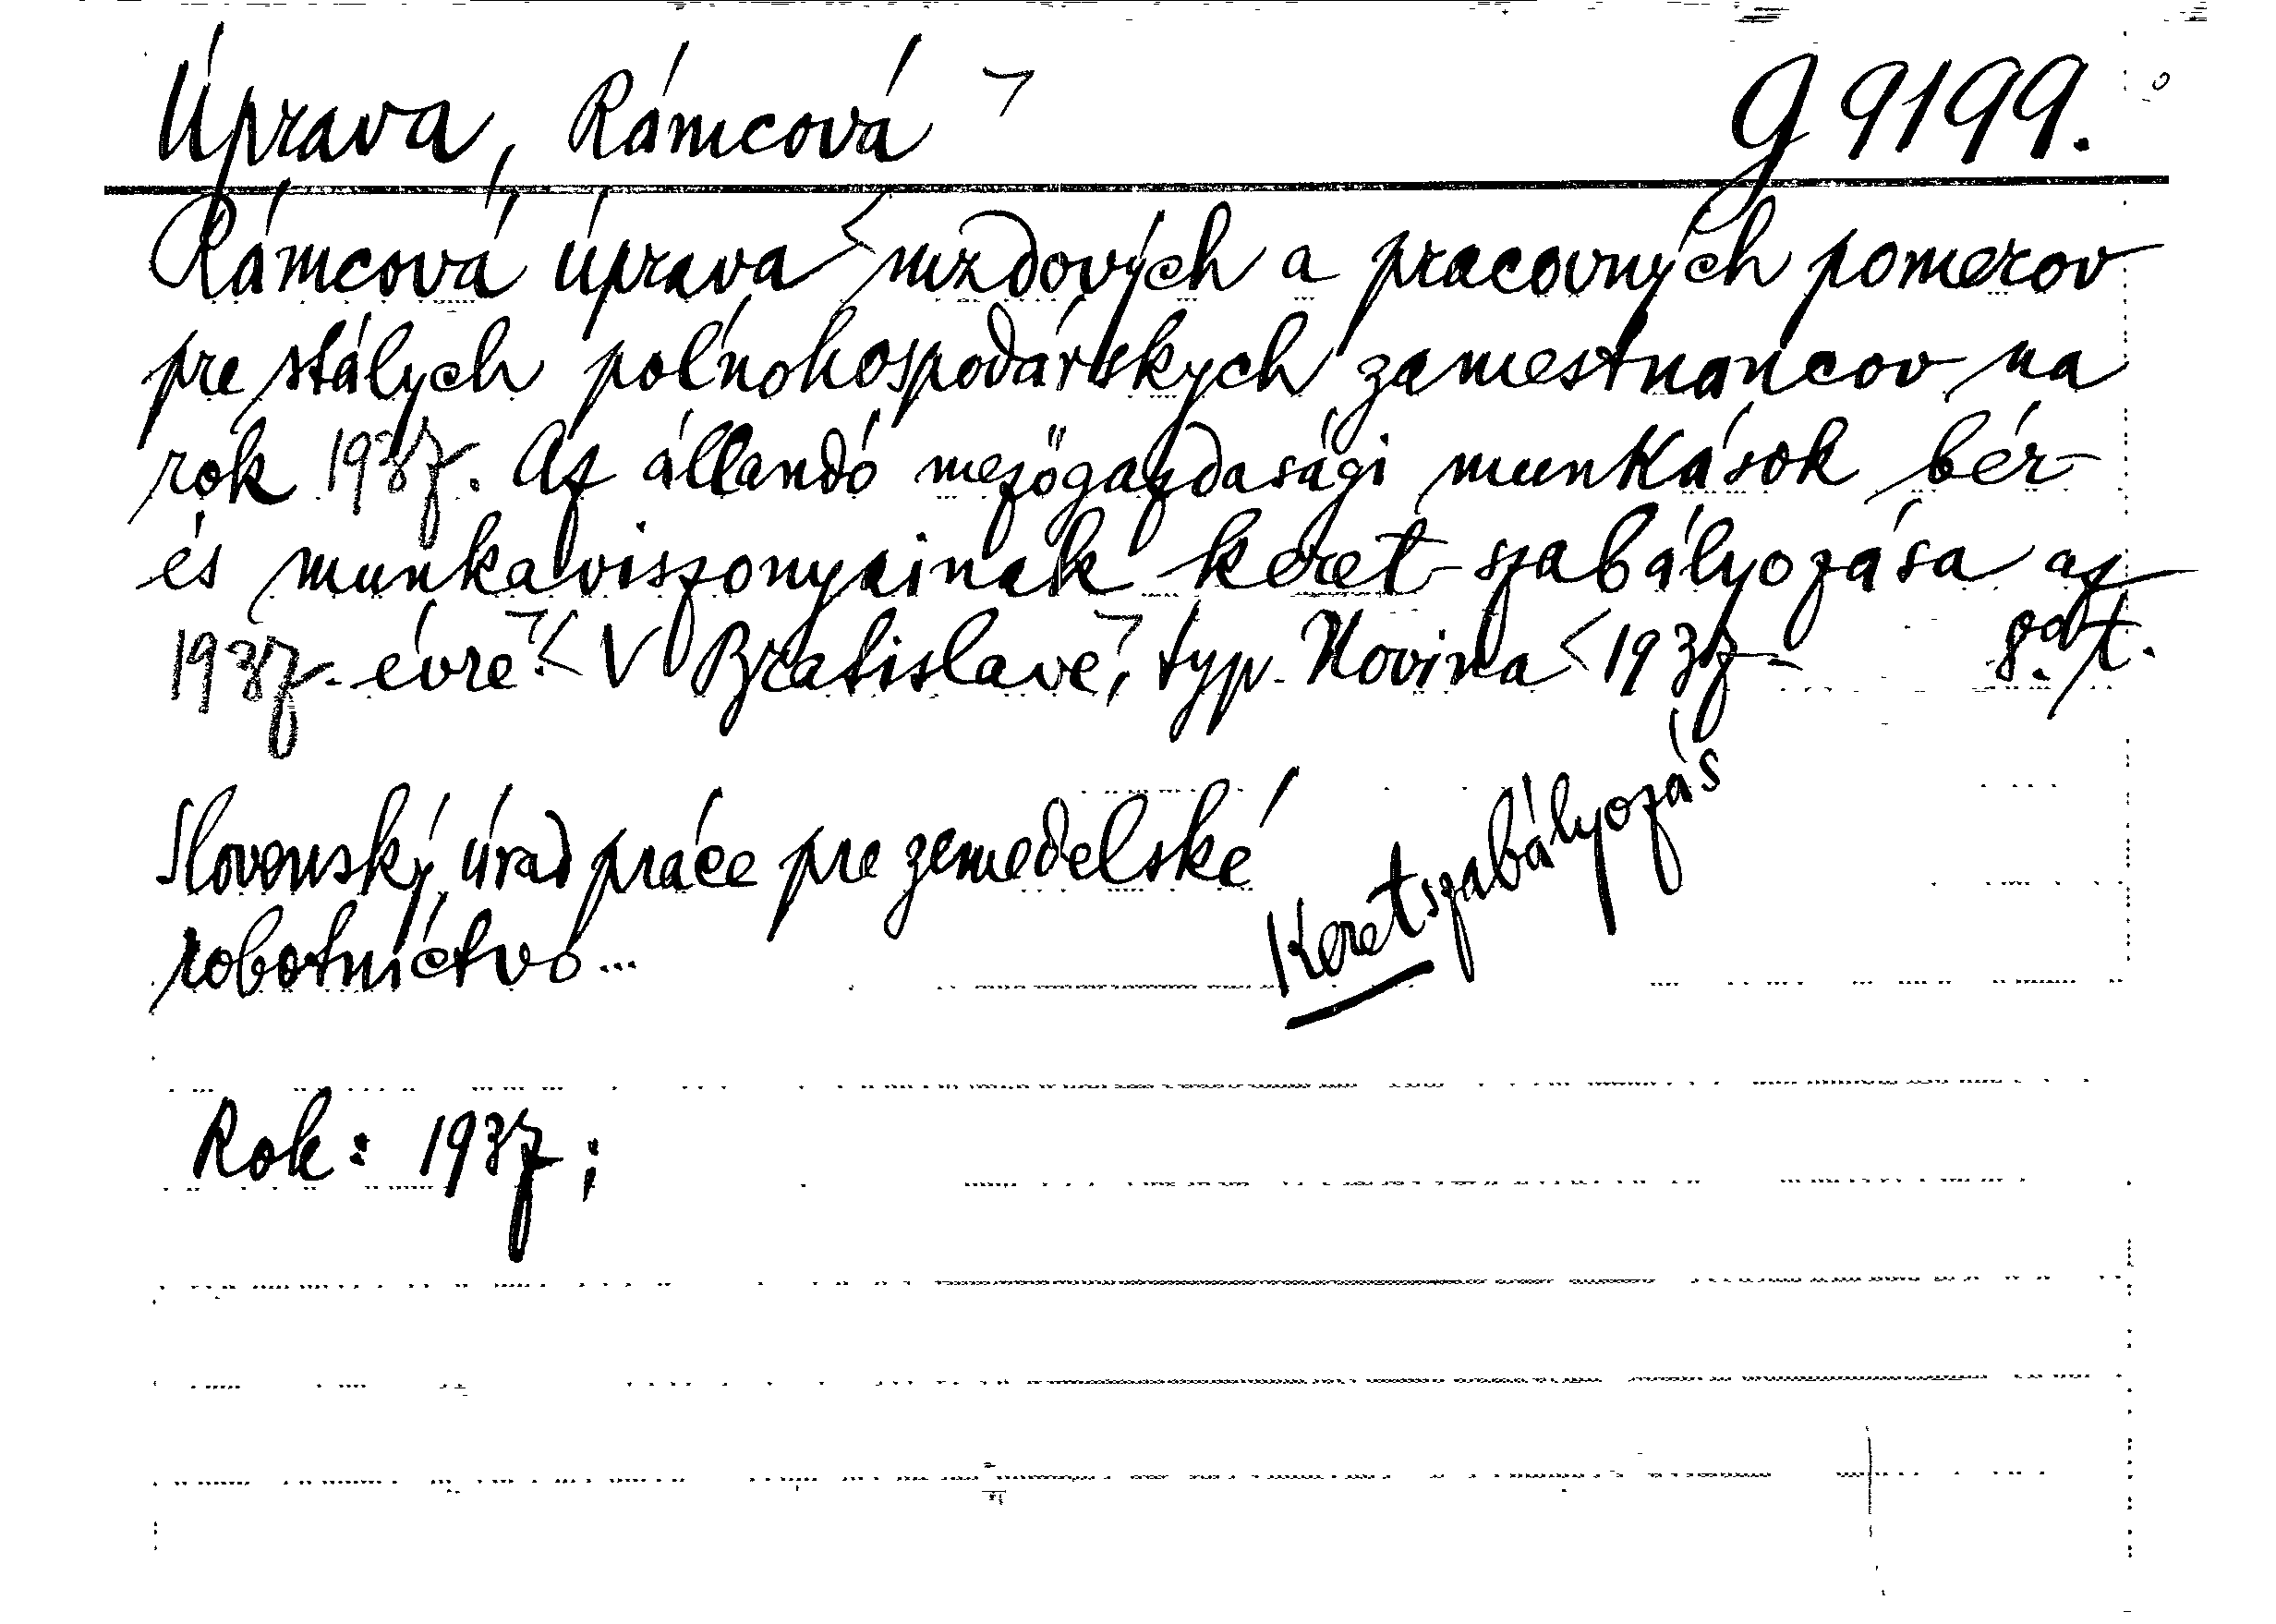 Úprava, Rámcová ¬ G 9199.
Rámcová úprava < mzdových a pracovných pomerov
pre stálych poľnohospodárskych zamestnancov na
rok 1937. Az állandó mezőgazdasági munkások bér-
és munkaviszonyainak keret-szabályozása az
1937-évre ¬.< V Bratislave ¬, typ. Novina < 1937- 8° t.
Slovenský úrad práce pre zemedelské
robotníctvo...
Keretszabályozás
Rok: 1937;